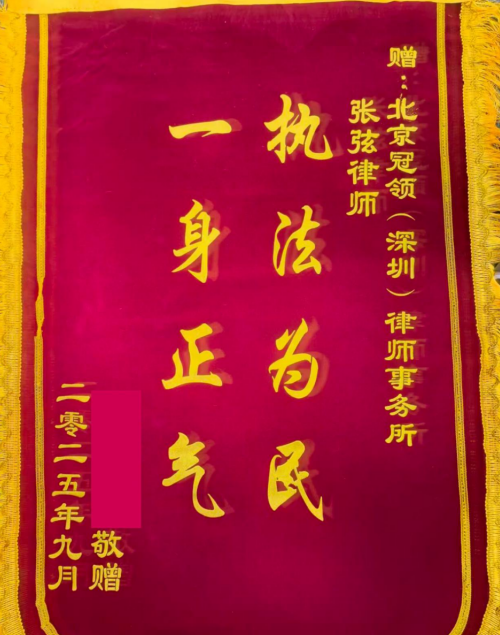 赠:北京冠领(深圳)律师事务所
张弦律师
执法为民
一身正气
敬赠
二零二五年九月